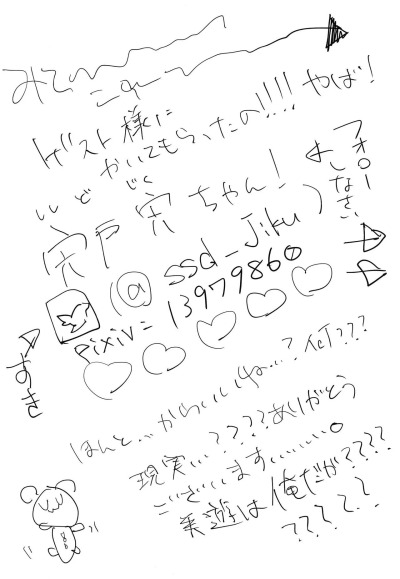 みて
これ
ゲスト様に
かいてもらったの!!!! やば!
フォロー
しなさい
ししど じく
宍戸 宍ちゃん!
(@ssd_Jiku)
pixiv= 13979860
すのき
ほんと…かわいいね…?何???
現実…????ありがとう
ございます………。
美遊は俺だが????
?????